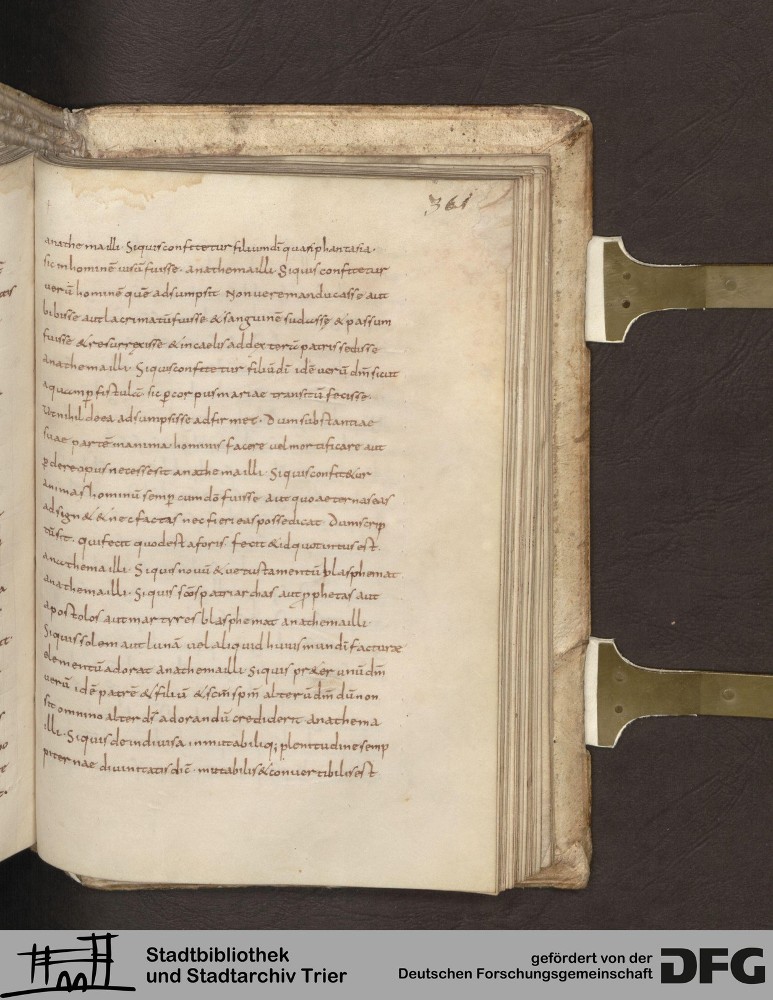 361
anathema illi. Siquis confitetur filium dī quasi phantasia.
sic in hominē uisū fuisse. anathema illi. Siquis confitetur
uerū hominē quē adsumpsit Non uere manducasse aut
bibisse aut lacrimatū fuisse & sanguinē sudasse & passum
fuisse & resurrexisse & in caelis ad dexterā patris sedisse
anathema illi. Siquis confitetur filiū dī idē uerū dm̄ sicut
aquam p fistulā. sic p corpus mariae transitū fecisse.
Ut nihil de ea adsumpsisse adfirmet. Dum substantiae
suae partē in anima hominis facere uel mortificare aut
pdere opus necesse sit anathema illi. Siquis confit&ur
animas hominū semp cum dō fuisse aut quo aeternas eas
adsign& & nec factas nec fieri eas posse dicat Dum scrip
tū sit. qui fecit quod est a foris. fecit & id quod intus est.
anathema illi. Siquis nouū & uetustamentū blasphemat
anathema illi. Siquis scōs patriarchas aut pphetas aut
apostolos aut martyres blasphemat anathema illi
Siquis solem aut lunā uel aliquid huius mundi facturae
elementū adorat anathema illi Siquis pr&er unū dm̄
uerū idē patrē & filiū & scm̄ spm̄ alterū dm̄ dū non
sit omnino alter ds̄ adorandū crediderit anathema
illi. Siquis de indiuisa inmutabiliq; plenitudine semp
piternae diuinitatis dic̄. mutabilis & conuertibilis est
Stadtbibliothek
und Stadtarchiv Trier
gefördert von der
Deutschen Forschungsgemeinschaft
DFG